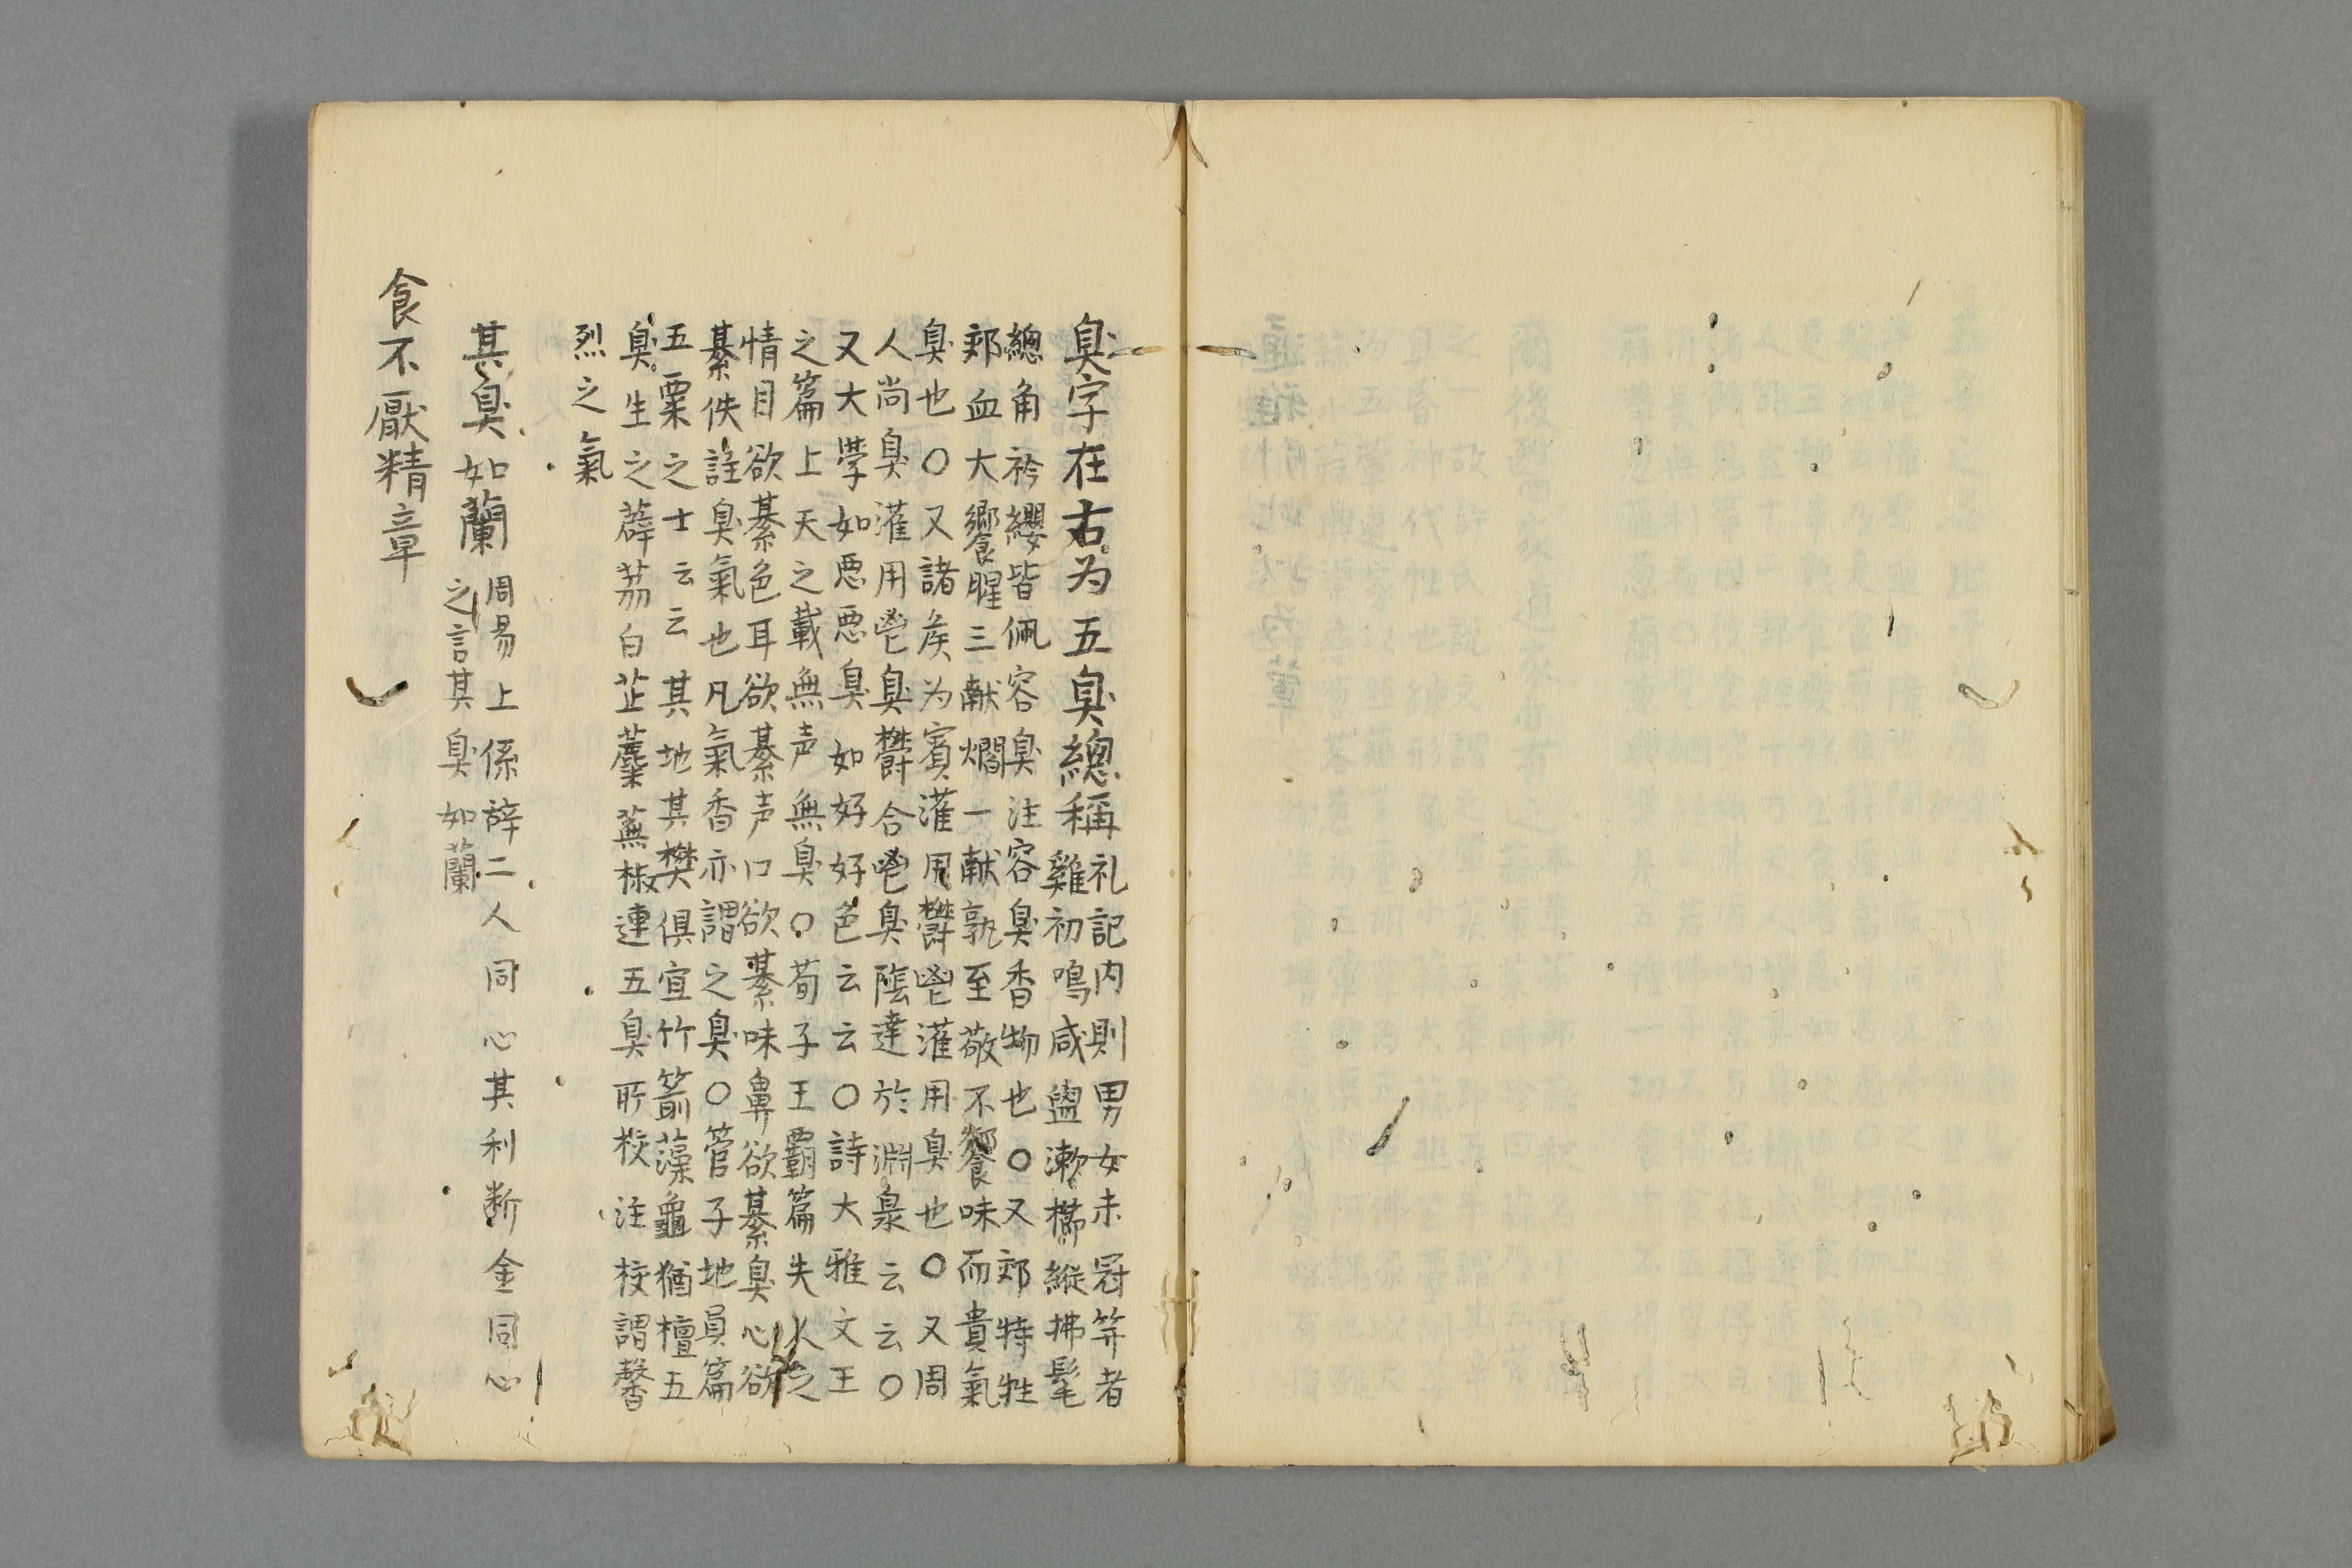 臭字在古为五臭總稱礼記内則男女未冠笄者
雞初鳴咸盥漱櫛縰拂髦
總角衿纓皆佩容臭注容臭香物也○又郊特牲
郊血大饗腥三献爓一献孰至敬不饗味而貴氣
臭也○又諸矦为賓灌用欝鬯灌用臭也○又周
人尚臭灌用鬯臭欝合鬯臭陰達於淵泉云云○
又大學如悪悪臭如好好色云云○詩大雅文王
之篇上天之載無声無臭○荀子王覇篇夫人之
情目欲綦色耳欲綦声口欲綦味鼻欲綦臭心欲
綦佚註臭氣也凡氣香亦謂之臭○管子地員篇
五粟之士云云其地其樊俱宜竹箭藻龜猶檀五
臭生之薜荔白芷蘪蕪椒連五臭所校注校謂馨
烈之氣
其臭如蘭周易上係辞二人同心其利断金同心
之言其臭如蘭
食不厭精章